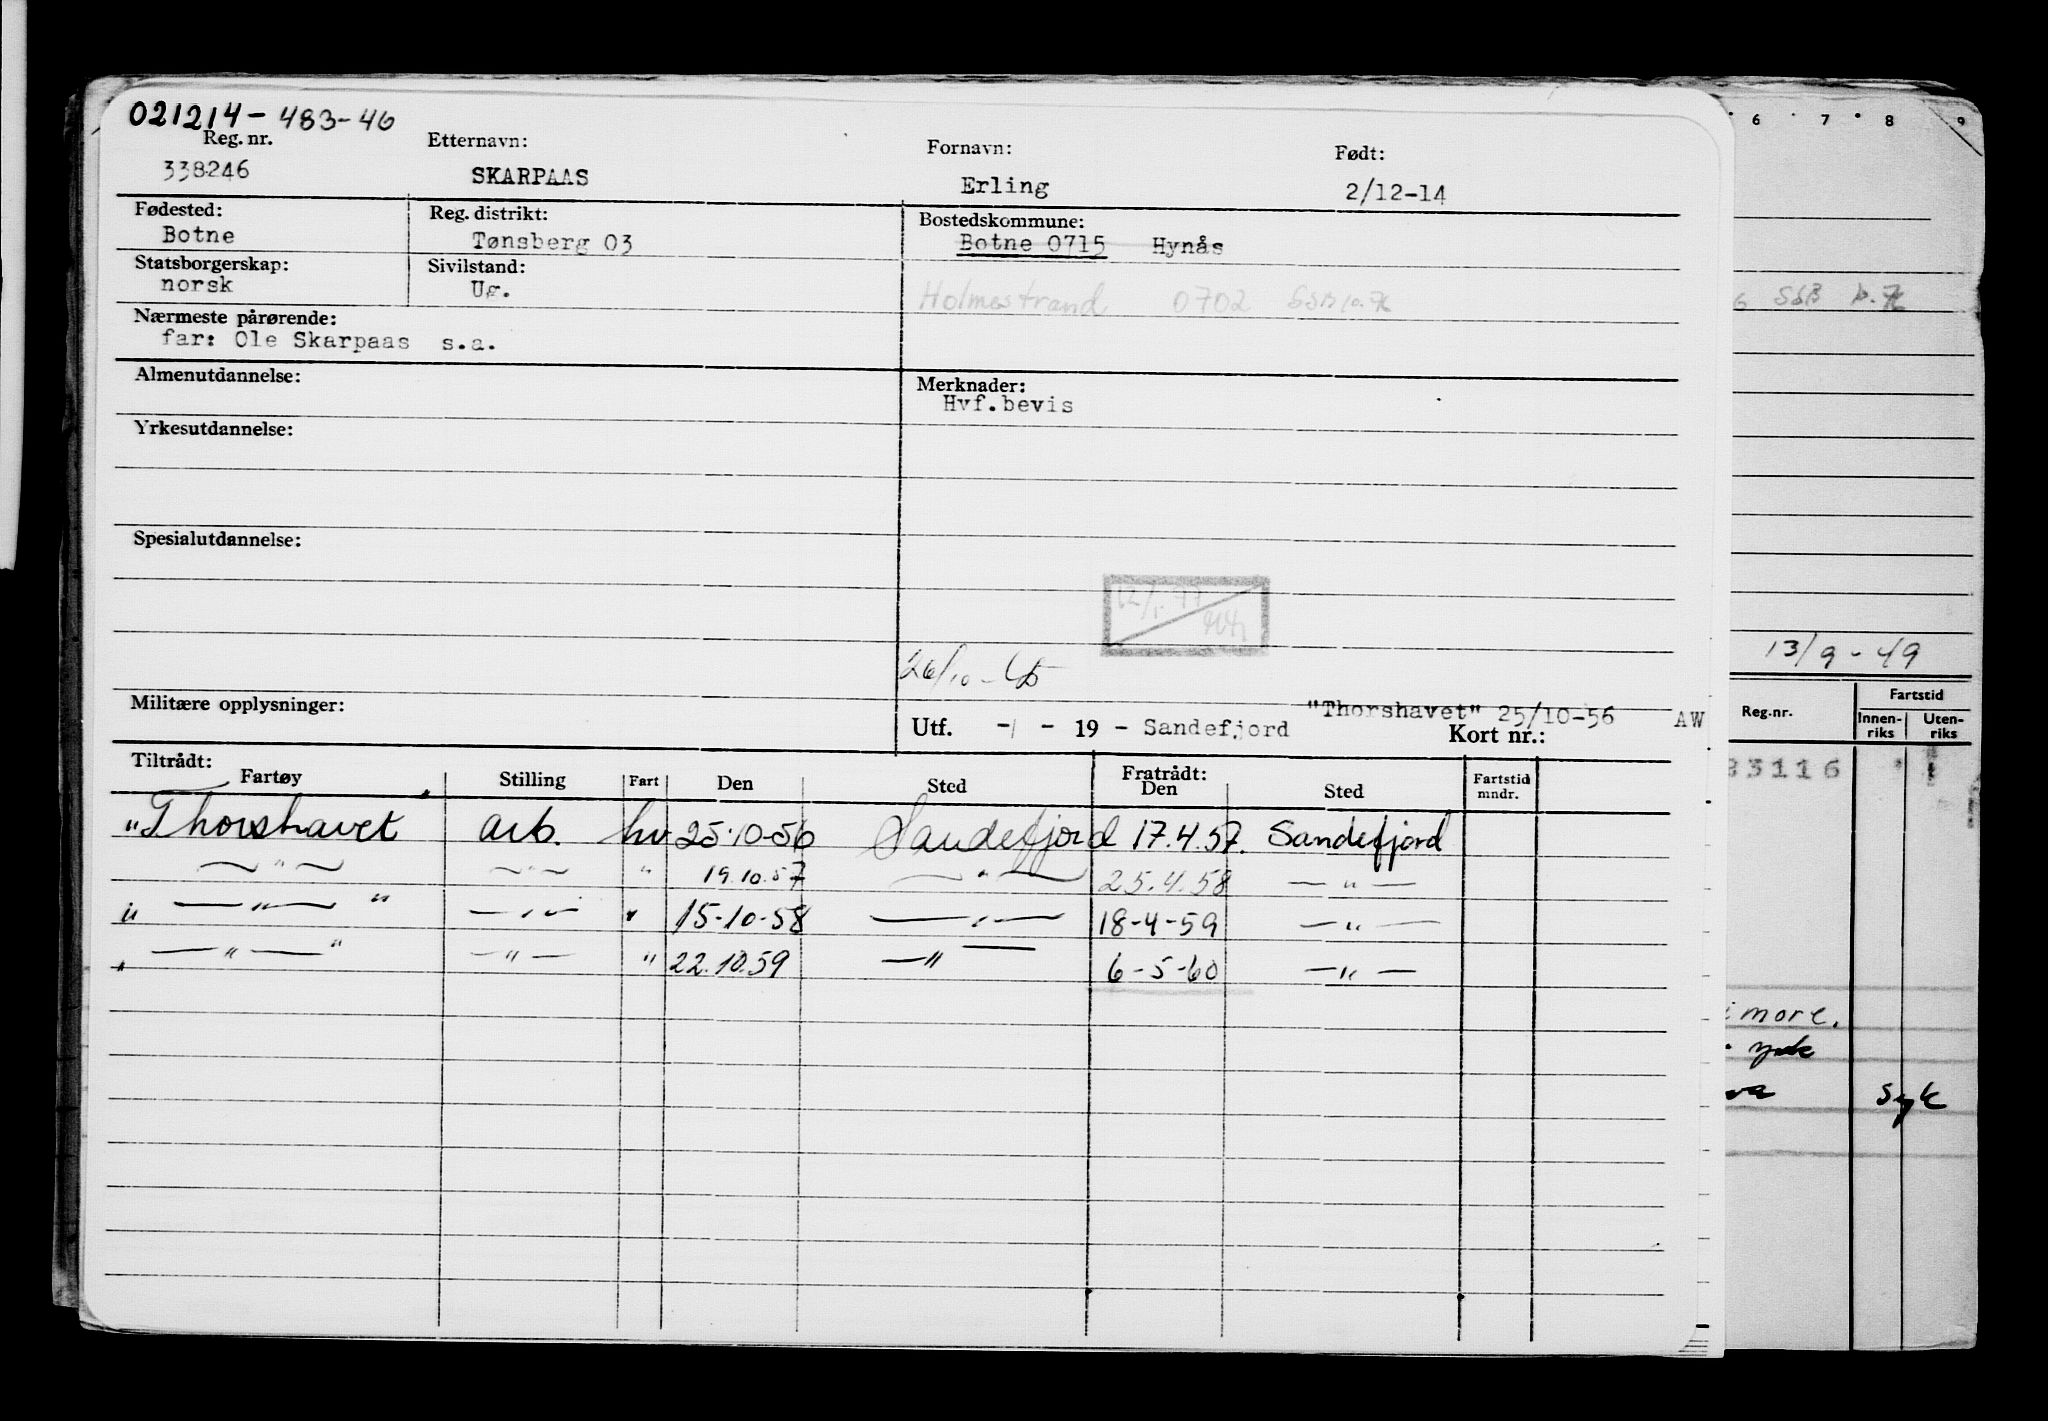 021214-483-46
Reg. nr. Etternavn: Fornavn: Født:
338246 SKARPAAS Erling 2/12-14
Fødested: Reg. distrikt: Bostedskommune:
Botne Tønsberg 03 Botne 0715 Hynås
Statsborgerskap: Sivilstand:
norsk Ug.
Holmestrand 0702 SSB
Nærmeste pårørende:
far: Ole Skarpaas s.a.
Almenutdannelse: Merknader:
Hvf.bevis
Yrkesutdannelse:
Spesialutdannelse:
Militære opplysninger:
"Thorshavet" 25/10-56 AW
Utf. - - 19 - Sandefjord Kort nr.:
Tiltrådt: Fratrådt:
Fartøy Stilling Fart Den Sted Den Sted Fartstid mndr.
"Thorshavet" arb. hv 25.10-56 Sandefjord 17.4.57. Sandefjord
— " — — " — " 19.10.57 — " — 25.4.58 — " —
" — " — " — " — " 15-10-58 — " — 18-4-59 — " —
" — " — " — " — " 22.10.59 — " — 6-5-60 — " —
6 7 8 9
SSB
13/9-49
Reg.nr. Fartstid
Innen-riks Uten-riks
83116
imore.
syk